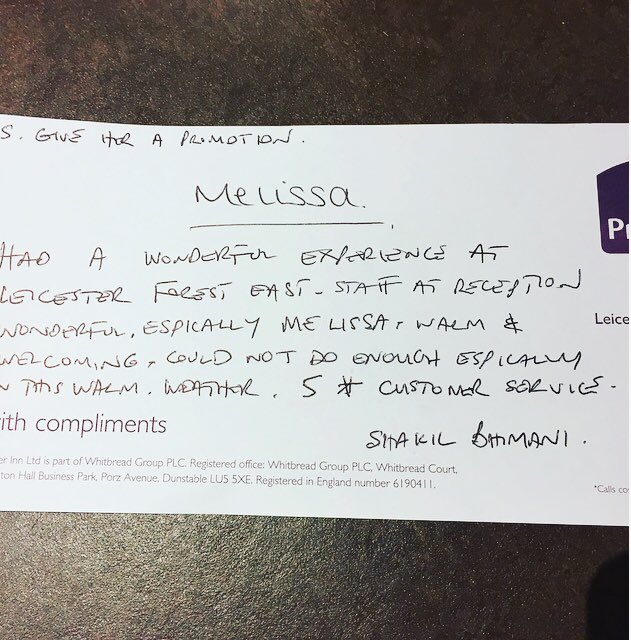 S. GIVE HER A PROMOTION.
Melissa.
HAD A WONDERFUL EXPERIENCE AT
LEICESTER FOREST EAST - STAFF AT RECEPTION
WONDERFUL, ESPICALLY MELISSA, WALM &
WELCOMING, COULD NOT DO ENOUGH ESPICALLY
N THIS WALM. WEATHER. 5 * CUSTOMER SERVICE -
ith compliments
SHAKIL BHIMANI.
er Inn Ltd is part of Whitbread Group PLC. Registered office: Whitbread Group PLC, Whitbread Court,
ton Hall Business Park, Porz Avenue, Dunstable LU5 5XE. Registered in England number 6190411.
Pr
Leice
*Calls co